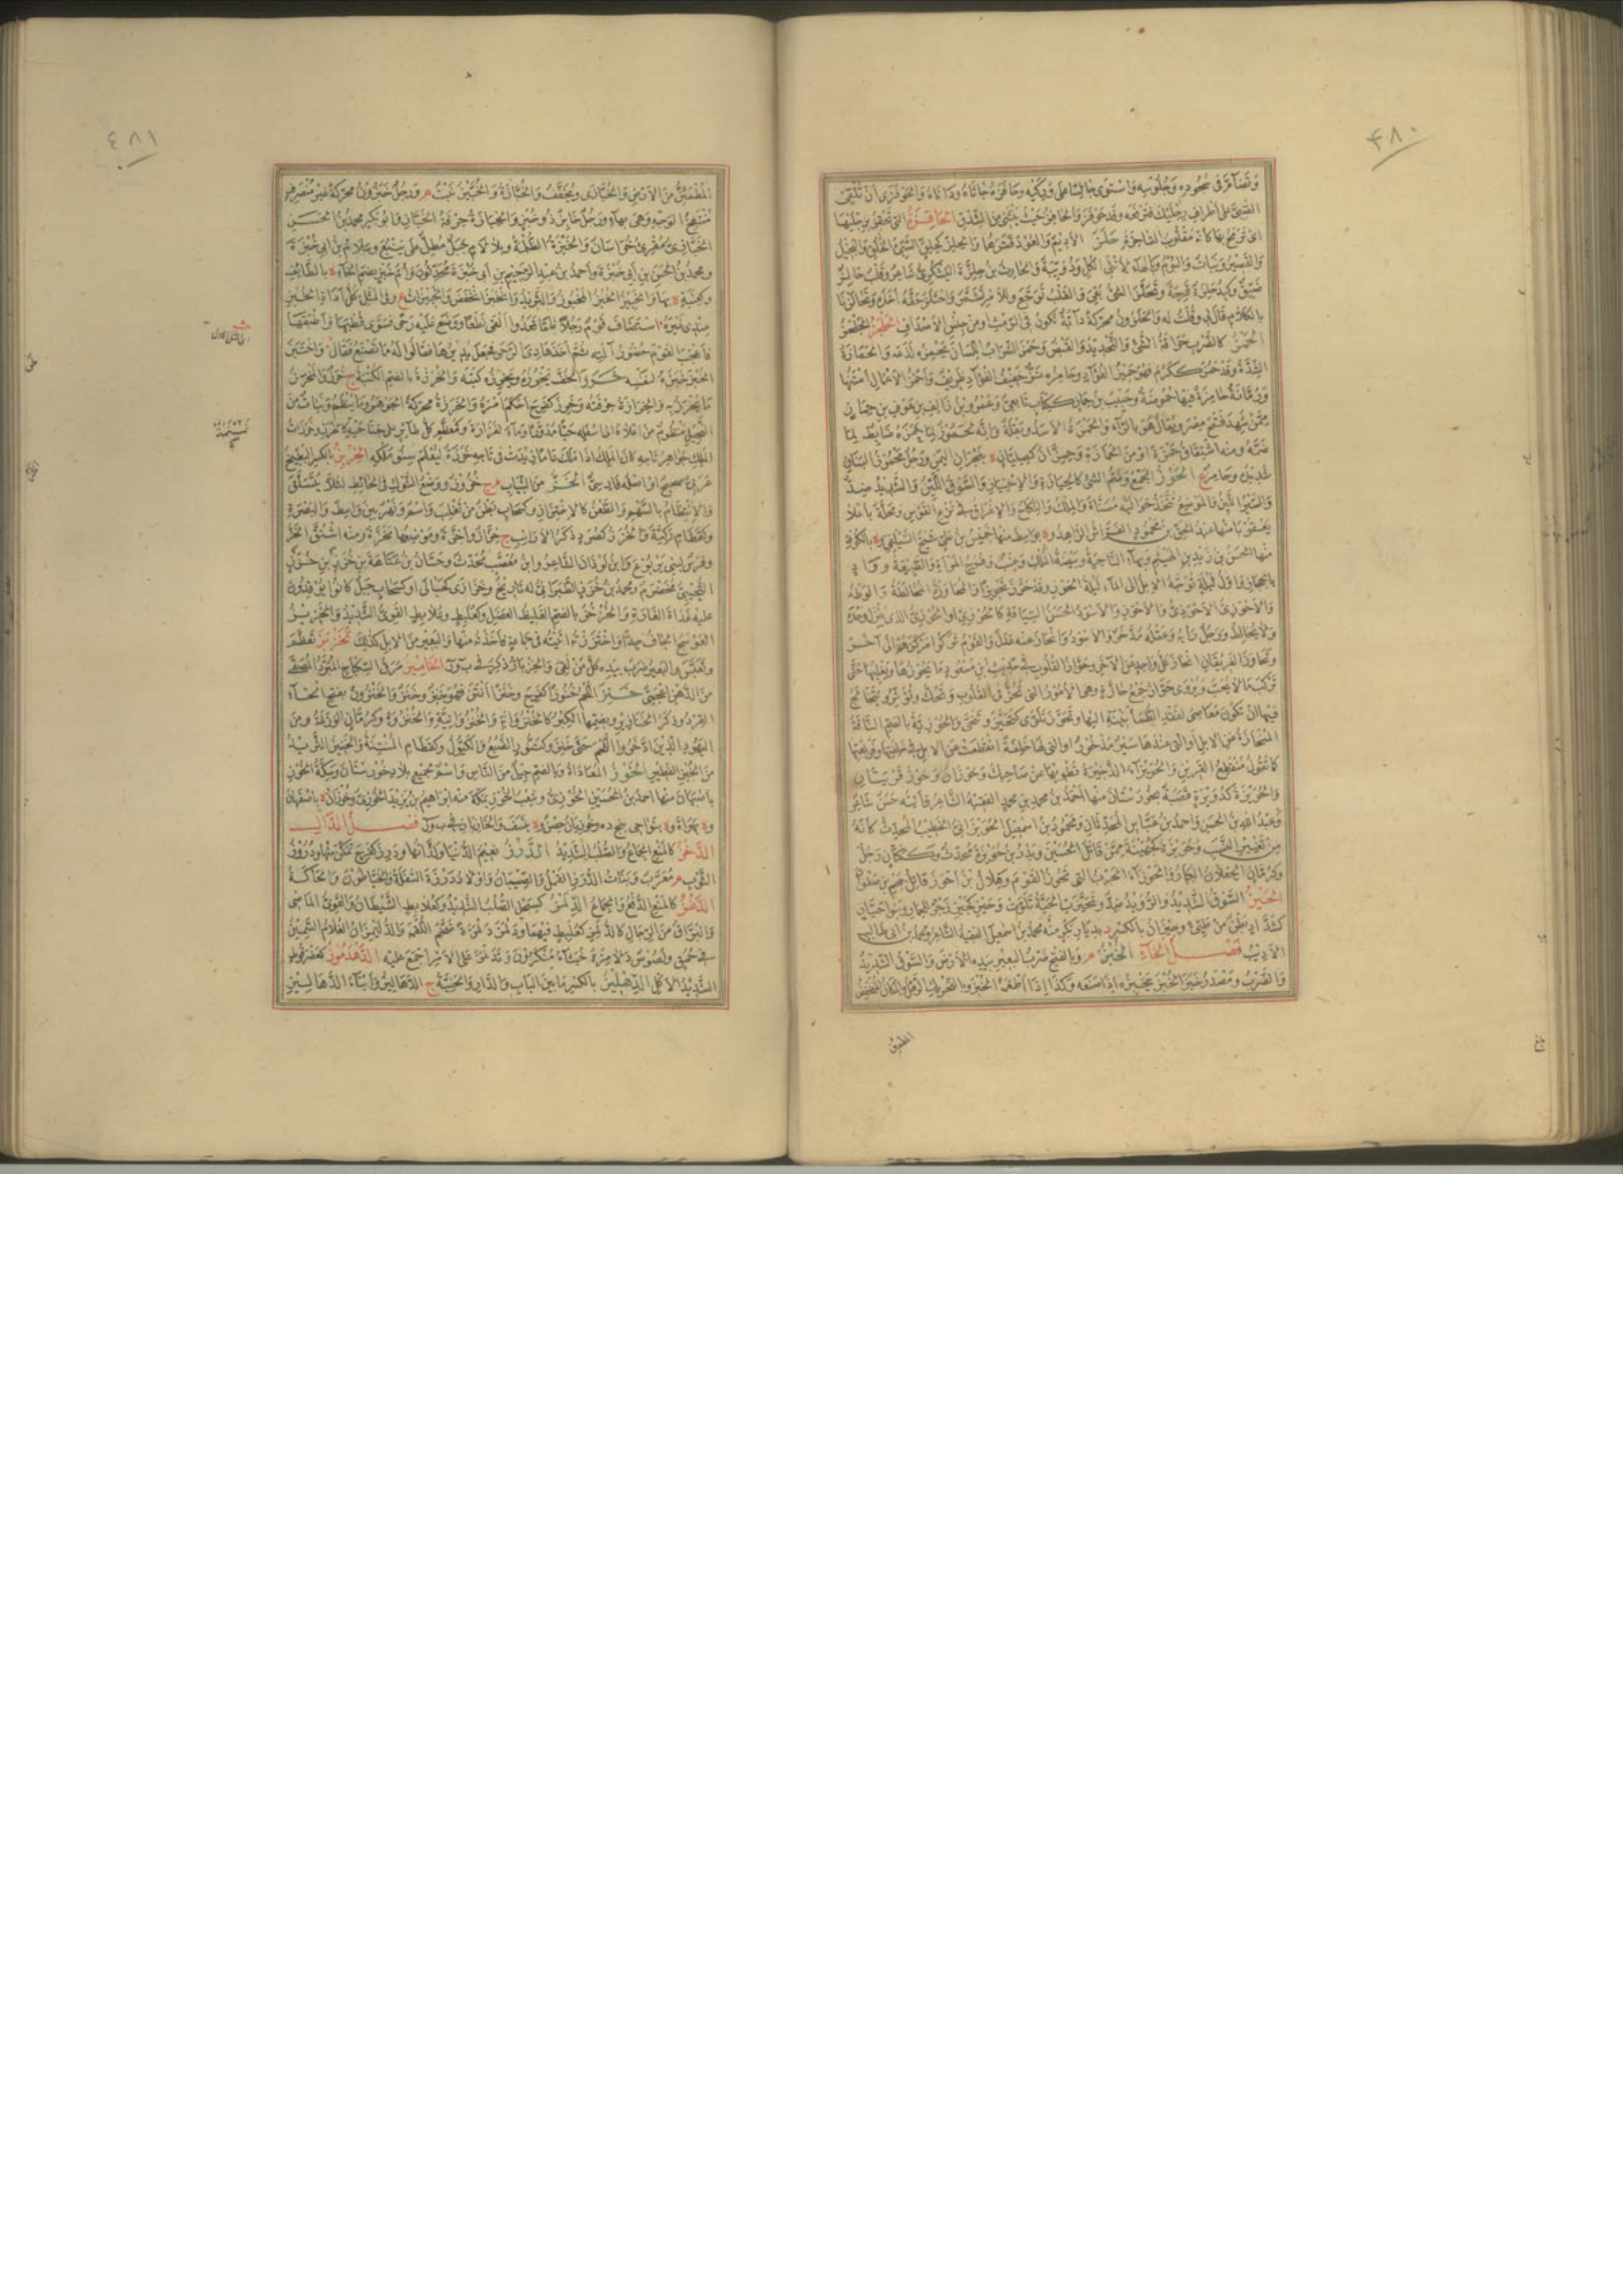 ٤٨٠
وتضآم في سجوده وجلوسه واستوى جالسا على وركيه وحافزه جاثاه وداناه والحوفزى ان تلقى
الصبي على اطراف رجليك فترفعه وقد حوفز والحافز حيث ينثني من الشدق الحاقزة التي تحقز برجليها
اى ترمح بها كانه مقلوب القاحزة حلز الاديم والعود قشرهما والحلز كجلق السيئ الخلق والبخيل
والقصير ونبات والبوم وبالهاء للانثى الكل ودويبة والحارث بن حلزة اليشكري شاعر وقلب حالز
ضيق وكبد حلزة قرحة وتحلز الشئ بقي والقلب توجع وللامر تشمر واحتلز حقه اخذه وتحالزنا
بالكلام قال لي وقلت له والحلزون محركة دابة تكون في الرمث او من جنس الاصداف
الحمز كالضرب حرافة الشئ والتحديد والقبض وحمز الشراب اللسان يحمزه لذعه والحمازة
الشدة وقد حمز ككرم فهو حميز الفؤاد وحامزه نزٌّ خفيف الفؤاد ظريف واحمز الاعمال امتنها
ورمانة حامزة فيها حموضة وحبيب بن حماز ككتاب تابعي وعمرو بن زالف بن عوف بن حماز
ممن شهد فتح مصر ويقال هو بالراء والحمزة الاسد وبقلة وانه لحموز لما حمزه ضابط لما
ضمه ومنه اشتقاق حمزة او من الحمازة وحمزان كصليان بنجران اليمن ورجل محموز البنان
شديد وحامز الحوز الجمع وضم الشئ كالحيازة والاحتياز والسوق اللين والشديد ضد
والسير اللين والموضع تتخذ حواليه مسناة والملك والنكاح والاغراق في نزع القوس ومحلة باعلا
بعقوبا منها عبد الحق بن محمود الفراش الزاهد وة بواسط منها خميس بن علي شيخ السلفي وة بالكوفة
منها الحسن بن زيد بن الهيثم وبهاء الناحية وبيضة الملك وعنب وفرج المراة والطبيعة
واول ليلة توجه الابل الى الماء ليلة الحوز وقد حوز تحويزا والمحاوزة المخالطة والوطء
والاحوزي الاحوذي والاحوز والاسود الحسن السياقة كالحوزي او الحوزي الذي ينزل وحده
ولا يخالط ورجل رايه وعقله مدخر والاسود وانحاز عنه عدل والقوم تركوا مركزهم الى آخر
وتحاوز الفريقان انحاز كل واحد عن الاخر وحواز القلوب في حديث ابن مسعود ما يحوزها ويغلبها حتى
تركب ما لا يحب ويروى حواز جمع حازة وهي الامور التي تحز في القلوب وتحك وتؤثر ويتخالج
فيها ان تكون معاصي لفقد الطمأنينة اليها وتحوز تلوى كتحيز وتنحى والحوزية بالضم الناقة
المنحازة عن الابل او التي عندها سير مذخور او التي لها خلفة انقطعت عن الابل في خلفتها وفراهتها
كما تقول منقطع القرين والحويزاء الذخيرة تطويها عن صاحبك وحوزان وحوز قريتان
والحويزة كدويرة قصبة بخوزستان منها احمد بن محمد بن محمد الفقيه الشاعر وابنه حسن شاعر
وعبد الله بن الحسن واحمد بن عباس المحدثان ومحمود بن اسمعيل الحويزاني الخطيب المحدث كانه
من تغيير النسب وحويزة كجهينة ممن قاتل الحسين وبدر بن حويزة محدث وككتان رجل
وكرمان الجعلان الكبار والحوزاء الحرب التي تحوز القوم وهلال بن احوز قاتل جهم بن صفوان
الحيز السوق الشديد والرويد ضد وتحيزت الحية تلوت وحيز حيز زجر للحمار وبنو حيازة
كشداد بطن من طيئ وحيزان بالكسر د بديار بكر منه محمد بن اسمعيل الفقيه الشاعر ومحمد بن ابي طالب
الاديب فصل الخاء الخبز م وبالفتح ضرب البعير بيده الارض والسوق الشديد
والضرب ومصدر خبز الخبز يخبزه اذا صنعه وكذا اذا اطعمه الخبز وبالتحريك الرهل والمكان المنخفض
المطمئن
٤٨١
المطمئن من الارض والخبازى ويخفف والخبازة والخبيز نبت م ورجل خبزون محركة غير منصرف
منتفخ الوجه وهي بهاء ورجل خابز ذو خبز والخبازة حرفة الخباز وابو بكر محمد بن الحسن
الخبازي مقرئ خراسان والخبزة الطلمة وبلا لام جبل مطل على ينبع وسلام بن ابي خبزة
ومحمد بن الحسن بن ابي خبزة واحمد بن عبد الرحيم بن ابي خبزة محدثون وام خبز بضم الخاء ة بالطائف
وكهنية ة بها والخبيز الخبز المخبوز والثريد وانخبز انخفض والخبزات ع وفي المثل كل اداة الخبز
عندي غيره استضاف قوم رجلا فلما قعدوا القى نطعا ووضع عليه رحى فسوى قطبها واطبقها
فاعجب القوم حضور آلته ثم اخذ هادي الرحى فجعل يديرها فقالوا له ما تصنع فقال واختبز
الخبز خبزه لنفسه خرز الخف يخرزه ويخرزه كتبه والخرزة بالضم الكتبة ج خرز والمخرز
ما يخرز به والخرازة حرفته وخرز كفرح احكم امره والخرزة محركة الجوهر وما ينظم ونبات من
النجيل منظوم من اعلاه الى اسفله حبا مدورا وماء لفزارة وكمعظم كل طائر على جناحيه كالخرز وخرزات
الملك جواهر تاجه كان الملك اذا ملك عاما زيدت في تاجه خرزة ليعلم سنو ملكه الخربز بالكسر البطيخ
عربي صحيح او اصله فارسي الخز من الثياب م ج خزوز ووضع الشوك في الحائط لئلا يتسلق
والانتظام بالسهم والطعن كالاختزاز وكسحاب بطن من تغلب واسم ونهر بين واسط والبصرة
وكقطام ركية والخزز كصرد ذكر الارانب ج خزان واخزة وموضعها مخزة ومنه اشتق الخز
وفرس لبني يربوع وابن لوذان الشاعر وابن معصب محدث وحسان بن عتاهية بن خزز بن خزز
التجيبي مخضرم ومحمد بن خزز الطبراني له تاريخ وخزازى كحبالى او كسحاب جبل كانوا يوقدون
عليه غداة الغارة والخزخز بالضم الغليظ العضل وكعلبط وعلابط القوي الشديد والخزيز
العوسج الجاف جدا واختززته اتيته في جماعة فاخذته منها والبعير من الابل كذلك تخزبز تعظم
وتعبس والبعير ضرب بيده كل من لقي والخزباز ذكر في ب و ز الخاميز مرق السكباج المبرد المصفى
من الدهن اعجمي خنز اللحم خنوزا كفرح وخنزا انتن فهو خنز وخنز والخنزوان بفتح الخاء
القرد وذكر الخنازير وبضمها الكبر كالخنزوانة والخنزوانية والخنزوة وكرمان الوزغة ومن
اليهود الذين ادخروا اللحم حتى خنز وكتنور الضبع والكيول وكقطام المنتنة والخنيز الثريد
من الخبز الفطير الخوز المعاداة وبالضم جيل من الناس واسم لجميع بلاد خوزستان وسكة الخوز
باصبهان منها احمد بن الحسين الخوزي وشعب الخوز بمكة منه ابراهيم بن يزيد الخوزي وخوزان ة باصفهان
وة بهراة وة بنواحي پنج ده وخوزيان حصن وة بنسف والخازباز في ب و ز فصل الدال
الدحز كالمنع الجماع والصلب الشديد الدرز نعيم الدنيا ولذاتها ودرز كفرح تمكن منها ودروز
الثوب م معرب وبنات الدروز القمل والصيبان واولاد درزة السفلة والخياطون والحاكة
الدعز كالمنع الدفع والجماع الدلمز كسبحل الصلب الشديد وكعلابط الشيطان والقوي الماضي
والبراق من الرجال كالدلمز كعلبط فيهما ودلمز دلمزة ضخم اللقمة والدليمزان الغلام السمين
في حمق ولصوص دلامزة خبثاء منكرون وتدلمز على الامر اجمع عليه الدهدموز كعضرفوط
الشديد الاكل الدهليز بالكسر ما بين الباب والدار والحنية ج الدهاليز وابناء الدهاليز